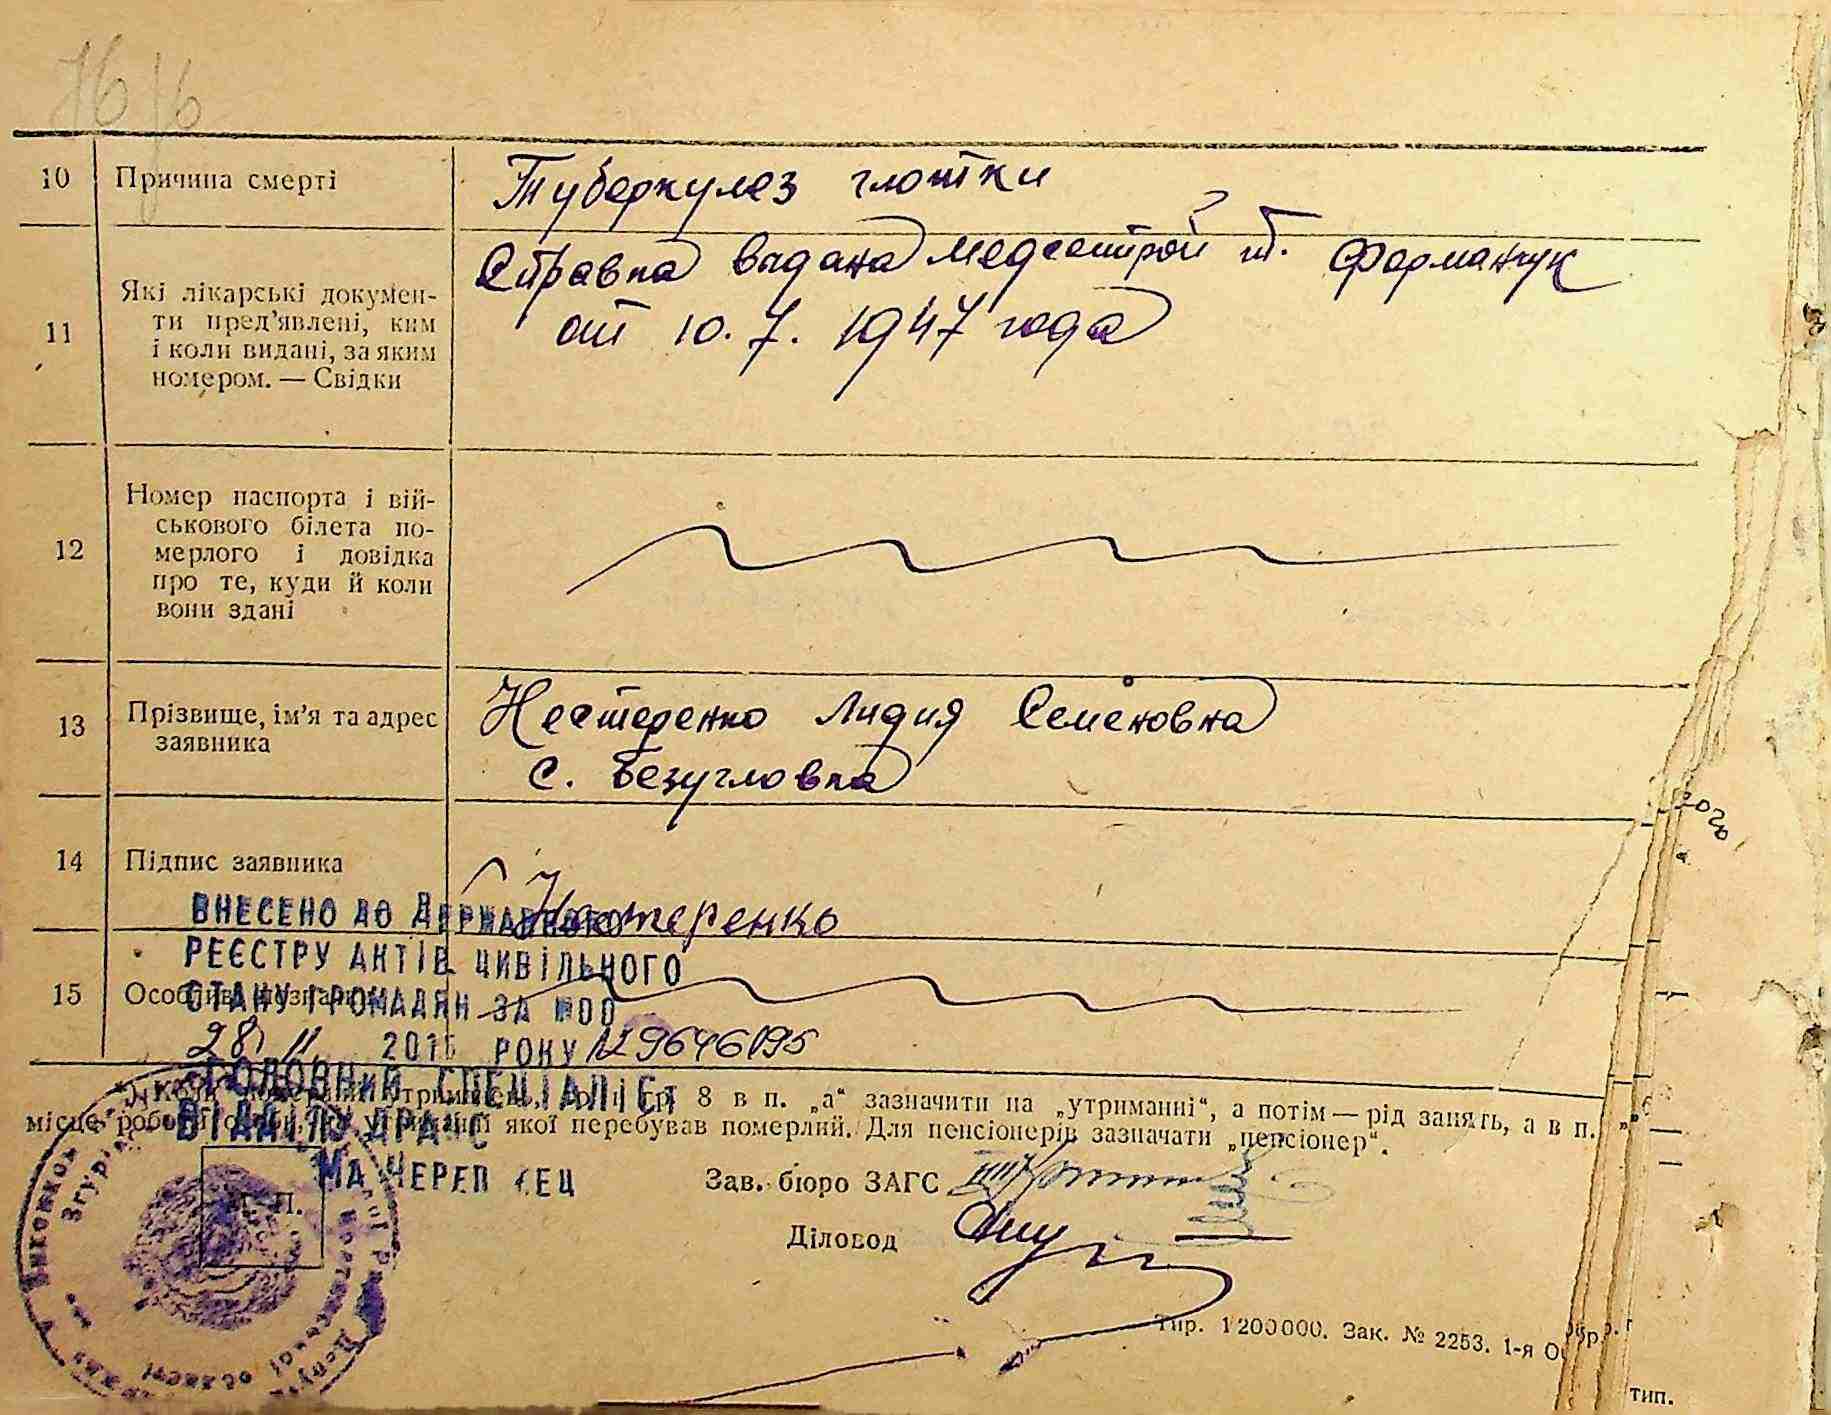 10
Причина смерті
Туберкулез глотки
11
Які лікарські докумен-
ти пред’явлені, ким
і коли видані, за яким
номером. — Свідки
Справка выдана медсестрой т. Форманчук
от 10. 7. 1947 года
12
Номер паспорта і вій-
ськового білета по-
мерлого і довідка
про те, куди й коли
вони здані
13
Прізвище, ім’я та адрес
заявника
Нестеренко Лидия Семеновна
с. Безугловка
14
Підпис заявника
Нестеренко
15
ВНЕСЕНО ДО ДЕРЖАВНОГО
РЕЄСТРУ АКТІВ ЦИВІЛЬНОГО
СТАНУ ГРОМАДЯН ЗА №00
28 11 201 РОКУ 129646195
ГОЛОВНИЙ СПЕЦІАЛІСТ
ВІДДІЛУ ДРАЦС
8 в п. „а“ зазначити на „утриманні“, а потім — рід занять, а в п.
місце якої перебував померлий. Для пенсіонерів зазначати „пенсіонер“.
Зав. бюро ЗАГС
М. П.
Діловод
Тир. 1200000. Зак. № 2253. 1-я
тип.